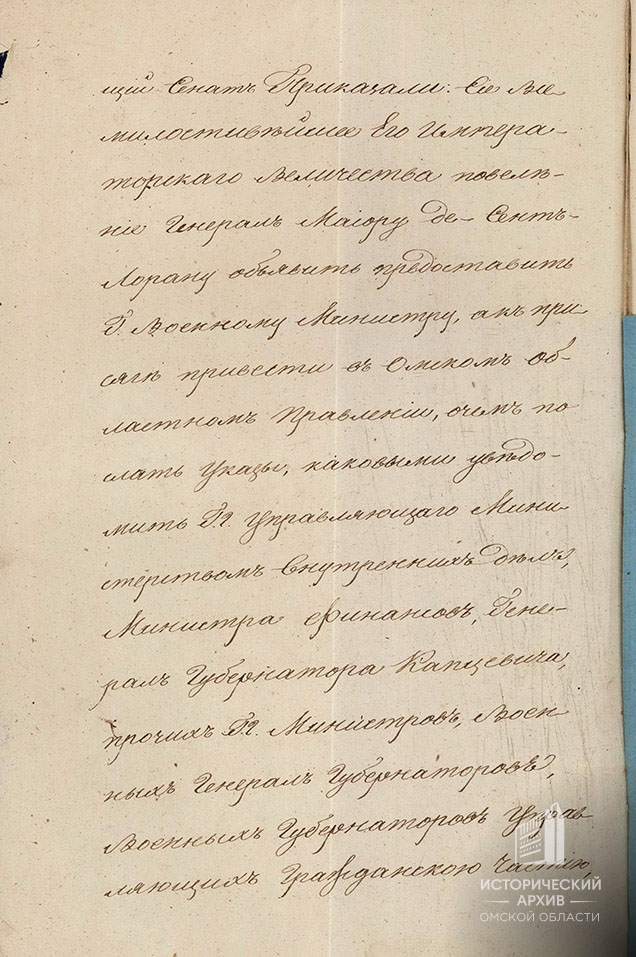 щій Сенатъ Приказали: Сіе Все
милостивѣйшее Его Импера-
торскаго Величества повелѣ-
ніе Генералъ Маіору де-Сентъ-
Лорану объявить предоставить
Г. Военному Министру, а къ при
сягѣ привести въ Омскомъ об-
ластномъ Правленіи, о чемъ по
слать Указы, каковыми увѣдо-
мить Гг. Управляющаго Мини-
стерствомъ Внутреннихъ дѣлъ,
Министра Финансовъ, Гене-
ралъ Губернатора Капцевича,
прочихъ Гг. Министровъ, Воен
ныхъ Генералъ Губернаторовъ,
Военныхъ Губернаторовъ Управ
ляющихъ Гражданскою Частію,
ИСТОРИЧЕСКИЙ
АРХИВ
ОМСКОЙ ОБЛАСТИ